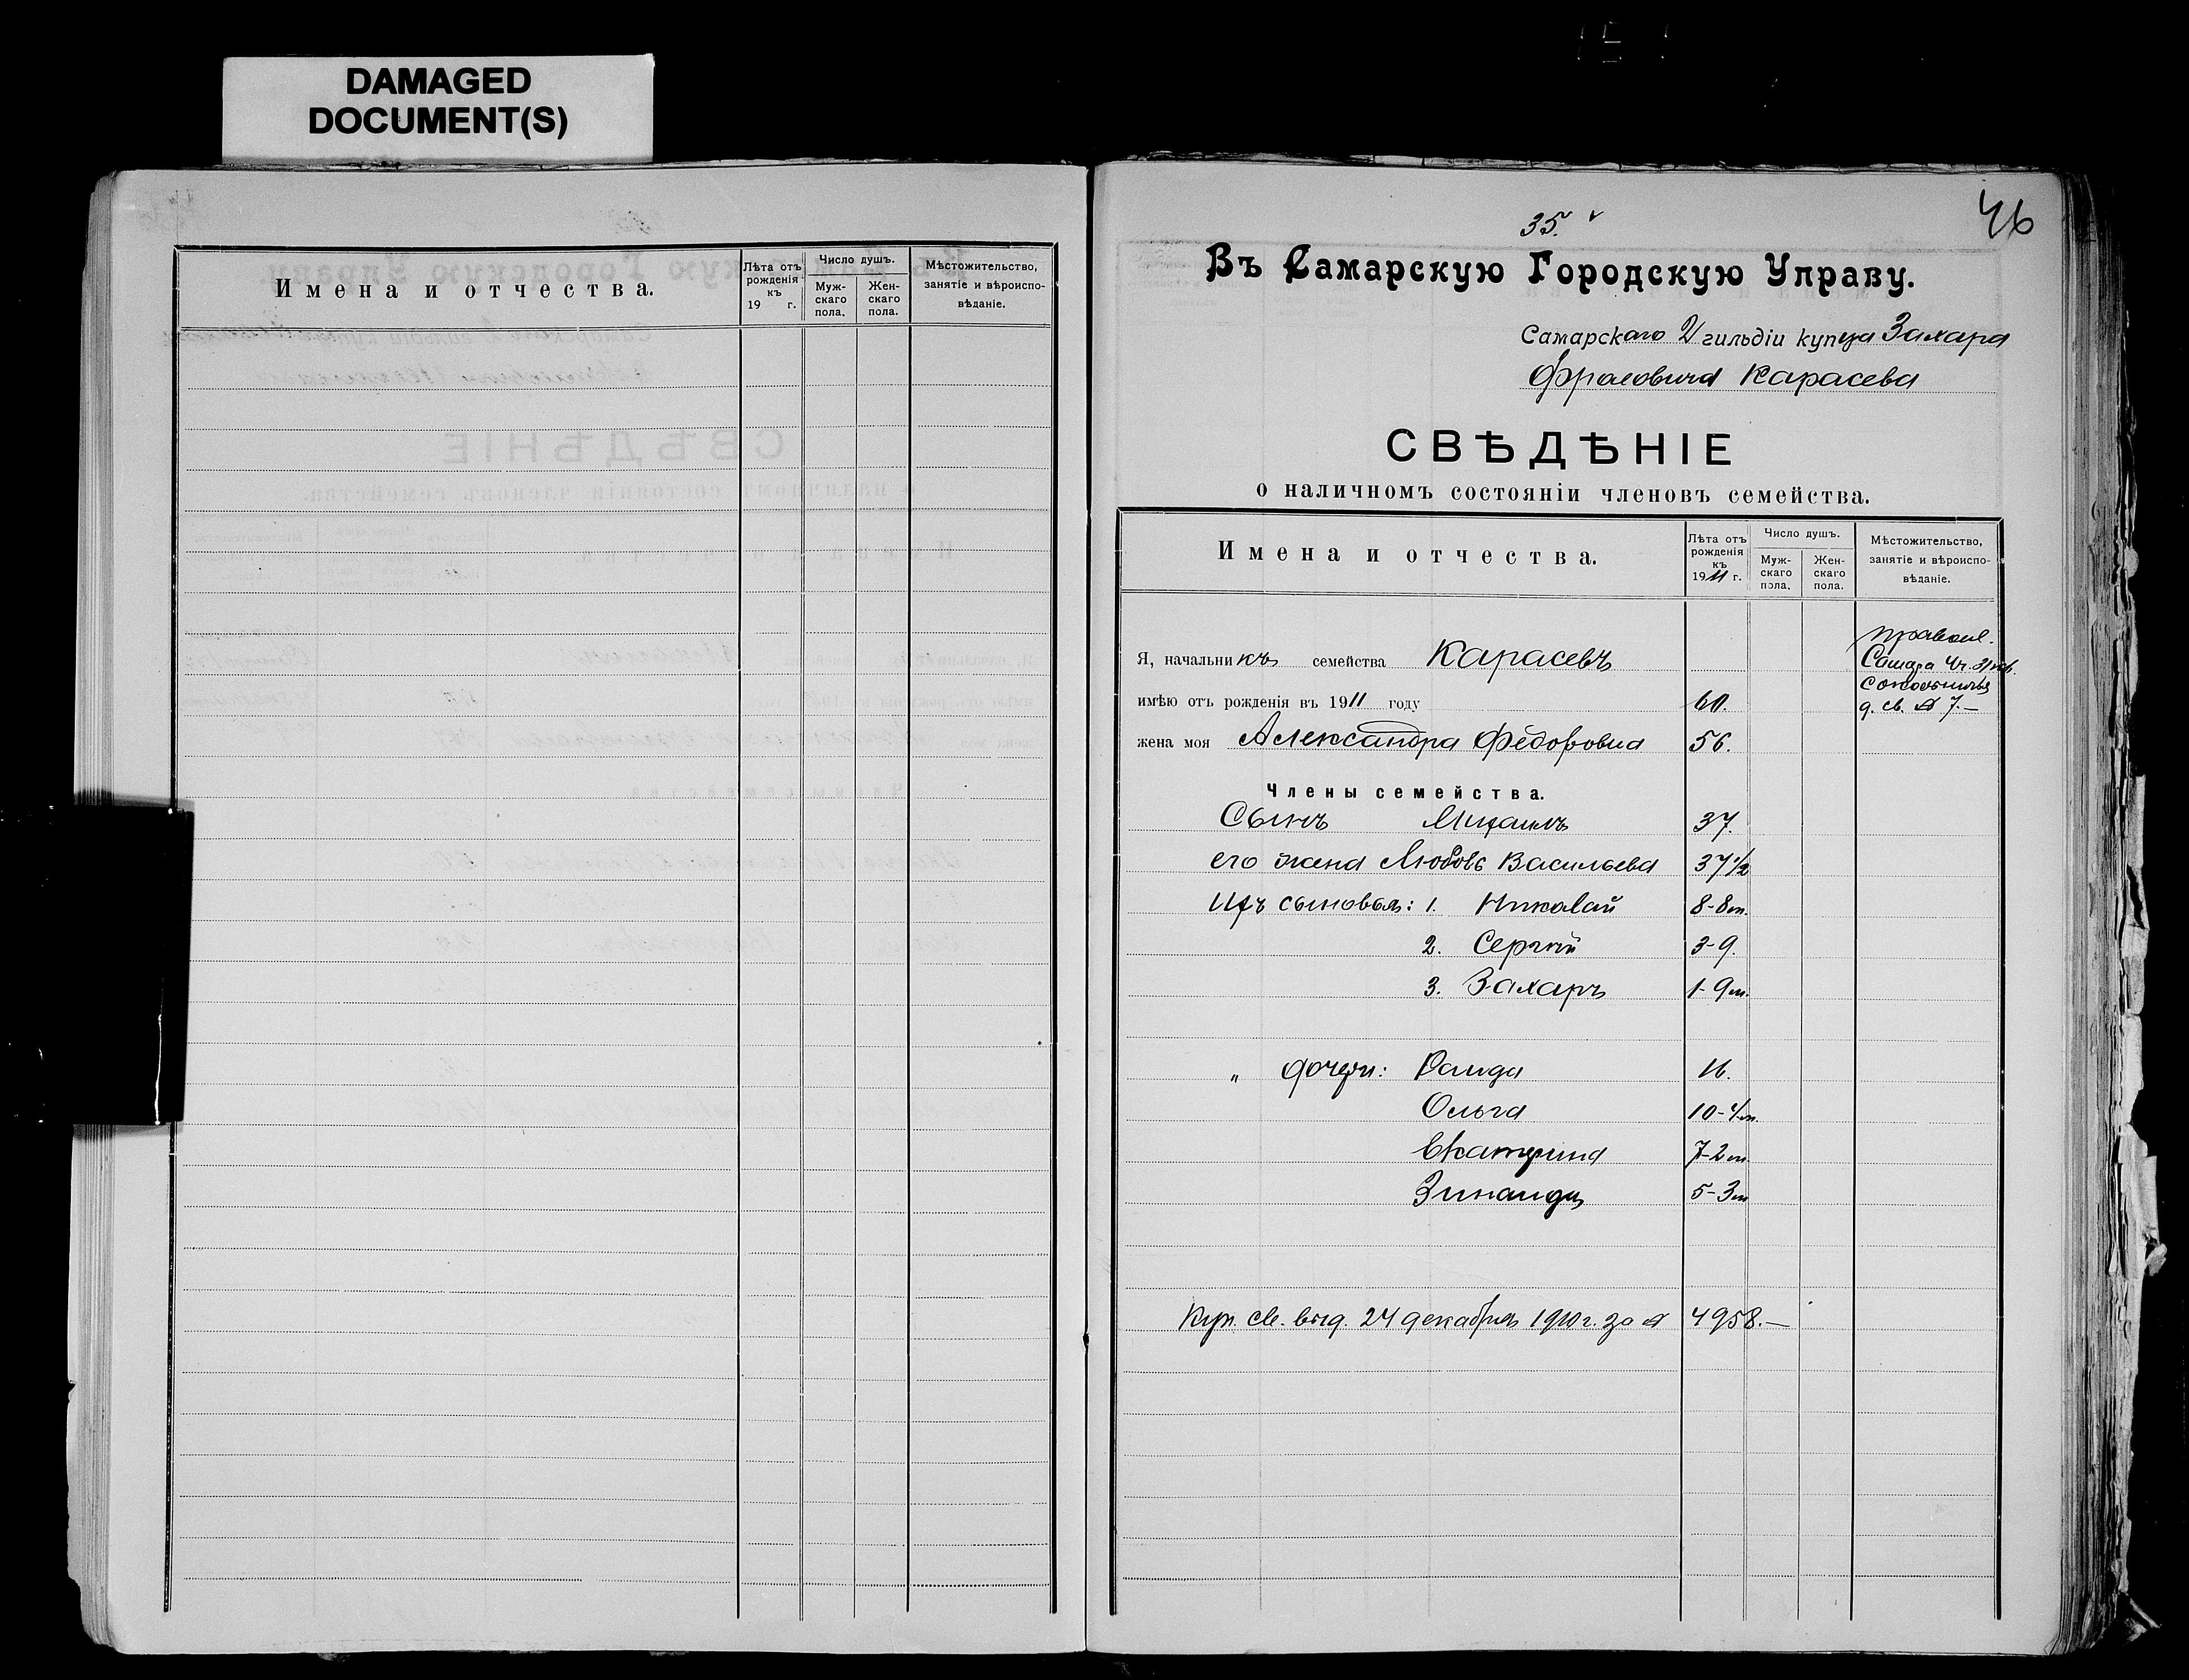 DAMAGED
DOCUMENT(S)
Имена и отчества.
Лѣта отъ рожденія къ 19 г.
Число душъ.
Муж-
скаго
пола.
Жен-
скаго
пола.
Мѣстожительство,
занятіе и вѣроиспо-
вѣданіе.
35.
46
Въ Самарскую Городскую Управу.
Самарскаго 2 гильдіи купца Захара
Фроловича Карасева
СВѢДѢНІЕ
о наличномъ состояніи членовъ семейства.
Имена и отчества.
Лѣта отъ
рожденія
къ
1911 г.
Число душъ.
Муж-
скаго
пола.
Жен-
скаго
пола.
Мѣстожительство,
занятіе и вѣроиспо-
вѣданіе.
правосл.
Я, начальникъ семейства Карасевъ
Самара
имѣю отъ рожденія въ 1911 году 60.
д. св. № 7.—
жена моя Александра Федоровна 56.
Члены семейства.
Сынъ Михаилъ 37.
его жена Любовь Васильева 37 1/2
Ихъ сыновья: 1. Николай 8-8 м.
2. Сергѣй 3-9.
3. Захаръ 1-9 м.
" дочери: Раида 16.
Ольга 10-4 м.
Екатерина 7-2 м.
Зинаида 5-3 м
Куп. св. выд. 24 декабря 1910 г. за № 4958.—